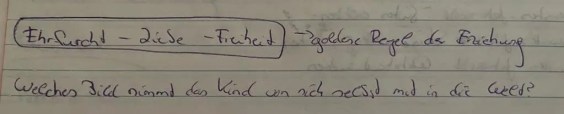 Ehrfurcht - Liebe - Freiheit → goldene Regel der Erziehung
Welches Bild nimmt das Kind von sich selbst mit in die Welt?